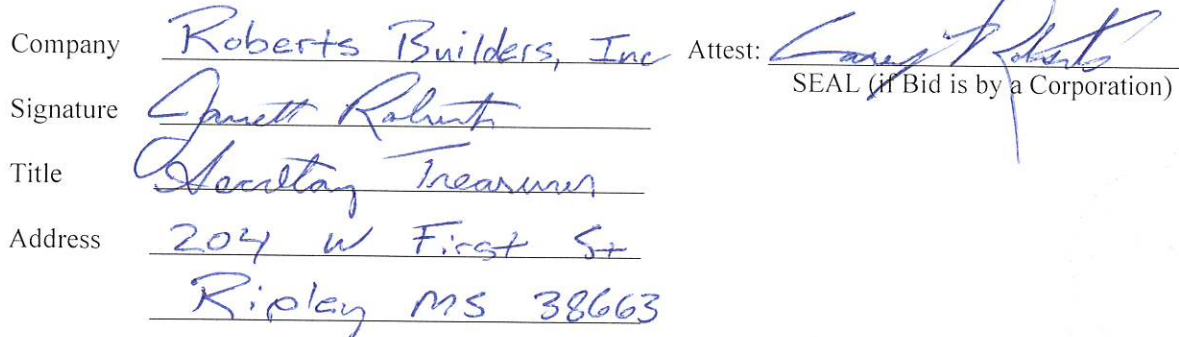 Company Roberts Builders, Inc Attest: Roberts
SEAL (if Bid is by a Corporation)
Signature Roberts
Title Secretary Treasurer
Address 204 W First St
Ripley MS 38663